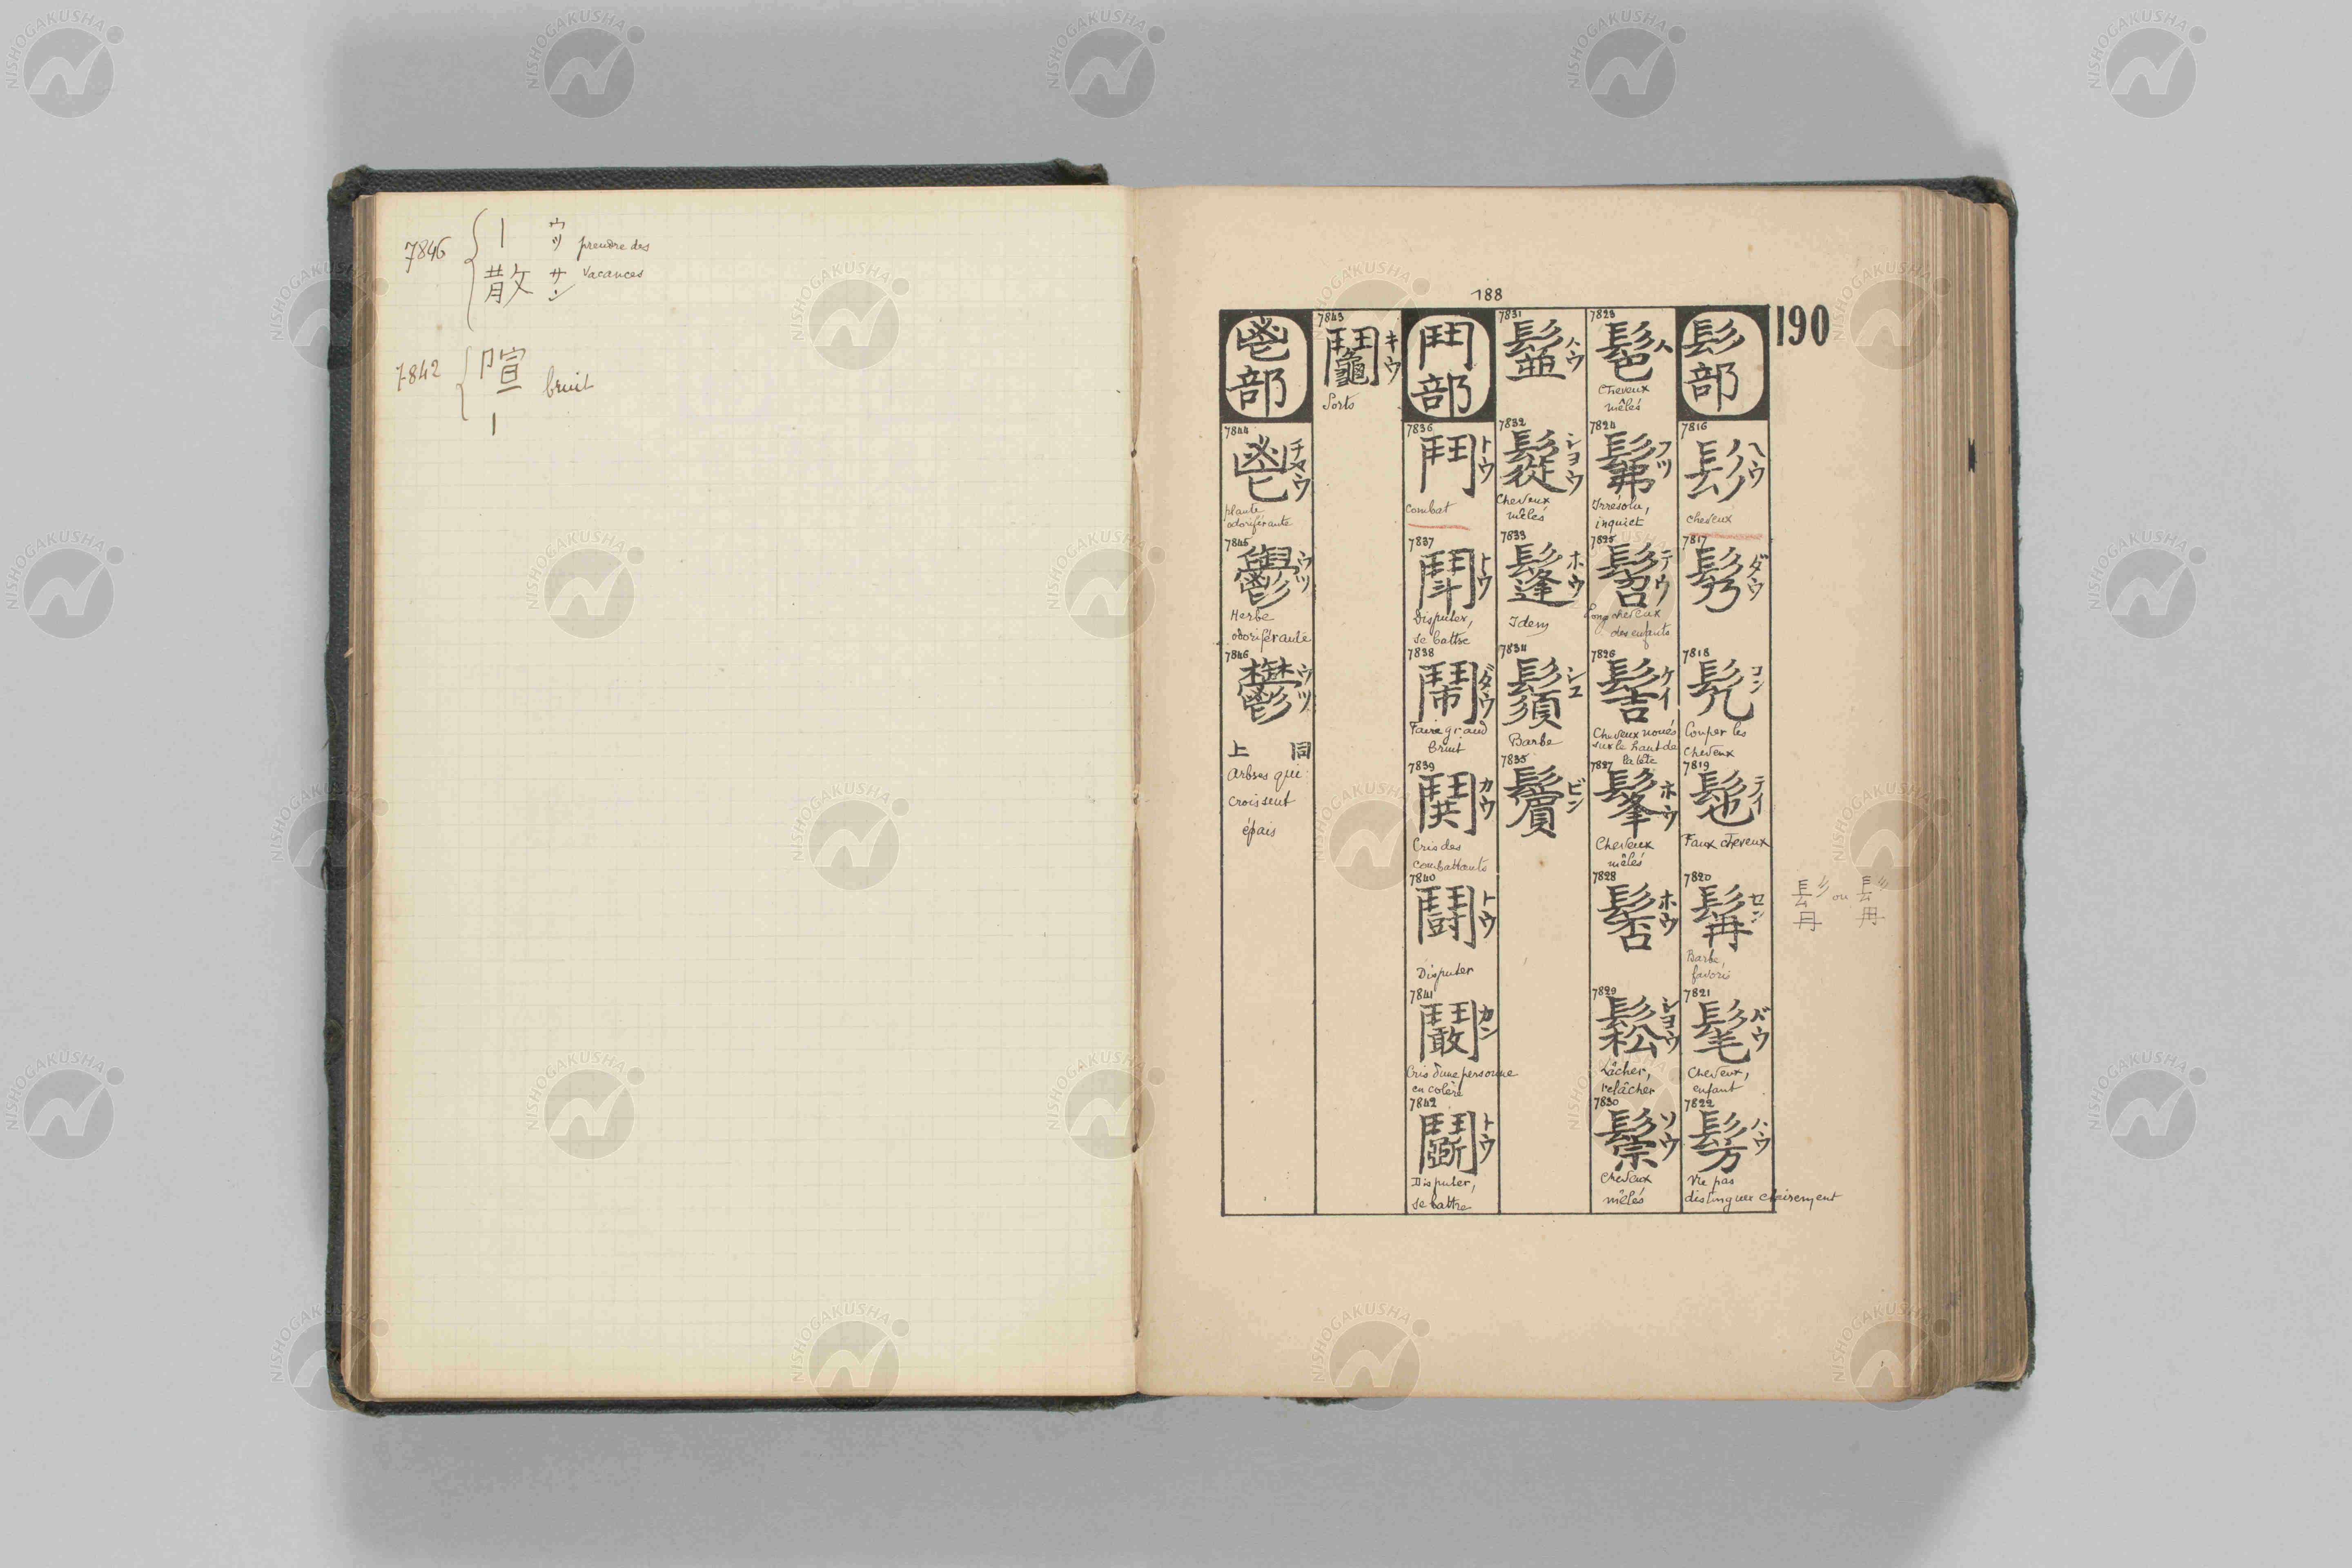 7846
｜ ウツ prendre des
散 サン vacances
7842
喧 bruit
｜
188
190
髟部
7816
髟 ヘウ
cheveux
7817
髳 ダウ
7818
髡 コン
Couper les
cheveux
7819
髢 テイ
Faux cheveux
7820
髯 セン
Barbe,
favoris
7821
髦 バウ
Cheveux,
enfant
7822
髣 ハウ
Vu pas
distinguer clairement
7823
Cheveux
mêlés
7824
髴 フツ
Irrésolu,
inquiet
7825
髫 テウ
Long cheveux
des enfants
7826
髻 ケイ
Cheveux noués
sur le haut de
la tête
7827
髼 ホウ
Cheveux
mêlés
7828
ホウ
7829
鬆 ショウ
Lâcher,
relâcher
7830
鬃 ソウ
Cheveux
mêlés
7831
ハウ
7832
ショウ
Cheveux
mêlés
7833
鬔 ホウ
Idem
7834
鬚 シユ
Barbe
7835
鬢 ビン
鬥部
7836
鬥 トウ
Combat
7837
鬦 トウ
Disputer,
se battre
7838
鬧 ダウ
Faire grand
bruit
7839
鬨 カウ
Cris des
combattants
7840
鬪 トウ
Disputer
7841
鬫 カン
Cris d'une personne
en colère
7842
鬭 トウ
Disputer,
se battre
7843
鬮 キウ
Sorts
鬯部
7844
鬯 チヤウ
plante
odoriférante
7845
ウツ
Herbe
odoriférante
7846
鬱 ウツ
同上
Arbres qui
croissent
épais
ou
NISHOGAKUSHA